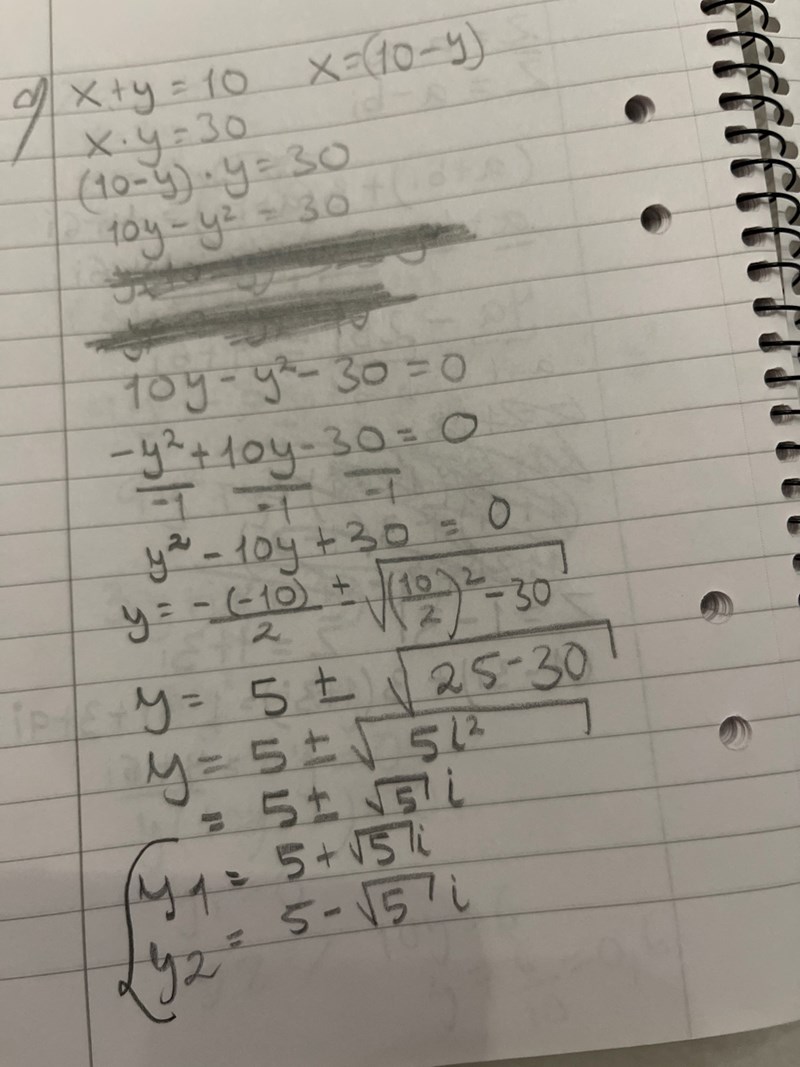 9) x+y = 10 x=(10-y)
x·y = 30
(10-y)·y = 30
10y - y² = 30
10y - y² - 30 = 0
-y²/-1 + 10y/-1 - 30/-1 = 0
y² - 10y + 30 = 0
y = -(-10)/2 ± √((10/2)² - 30)
y = 5 ± √(25-30)
y = 5 ± √(5i²)
= 5 ± √5 i
y1 = 5 + √5 i
y2 = 5 - √5 i